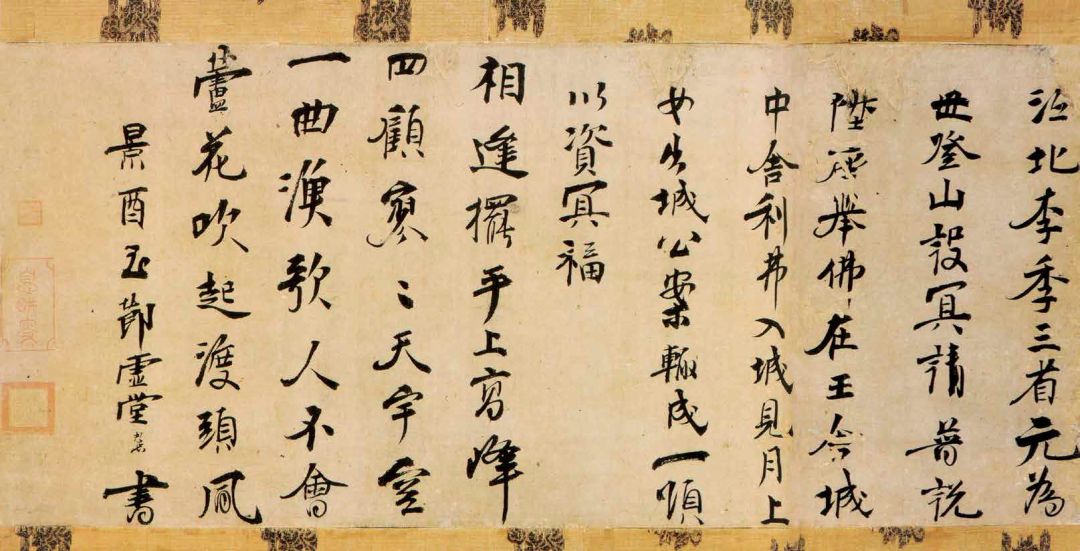 江北李季三省元為
母登山設冥請普説
陞座舉佛在王舍城
中舍利弗入城見月上
女出城公案輙成一頌
以資冥福
相逢擺手上高峰
四顧寥〻天宇空
一曲漁歌人不會
蘆花吹起渡頭風
景酉節虛堂書